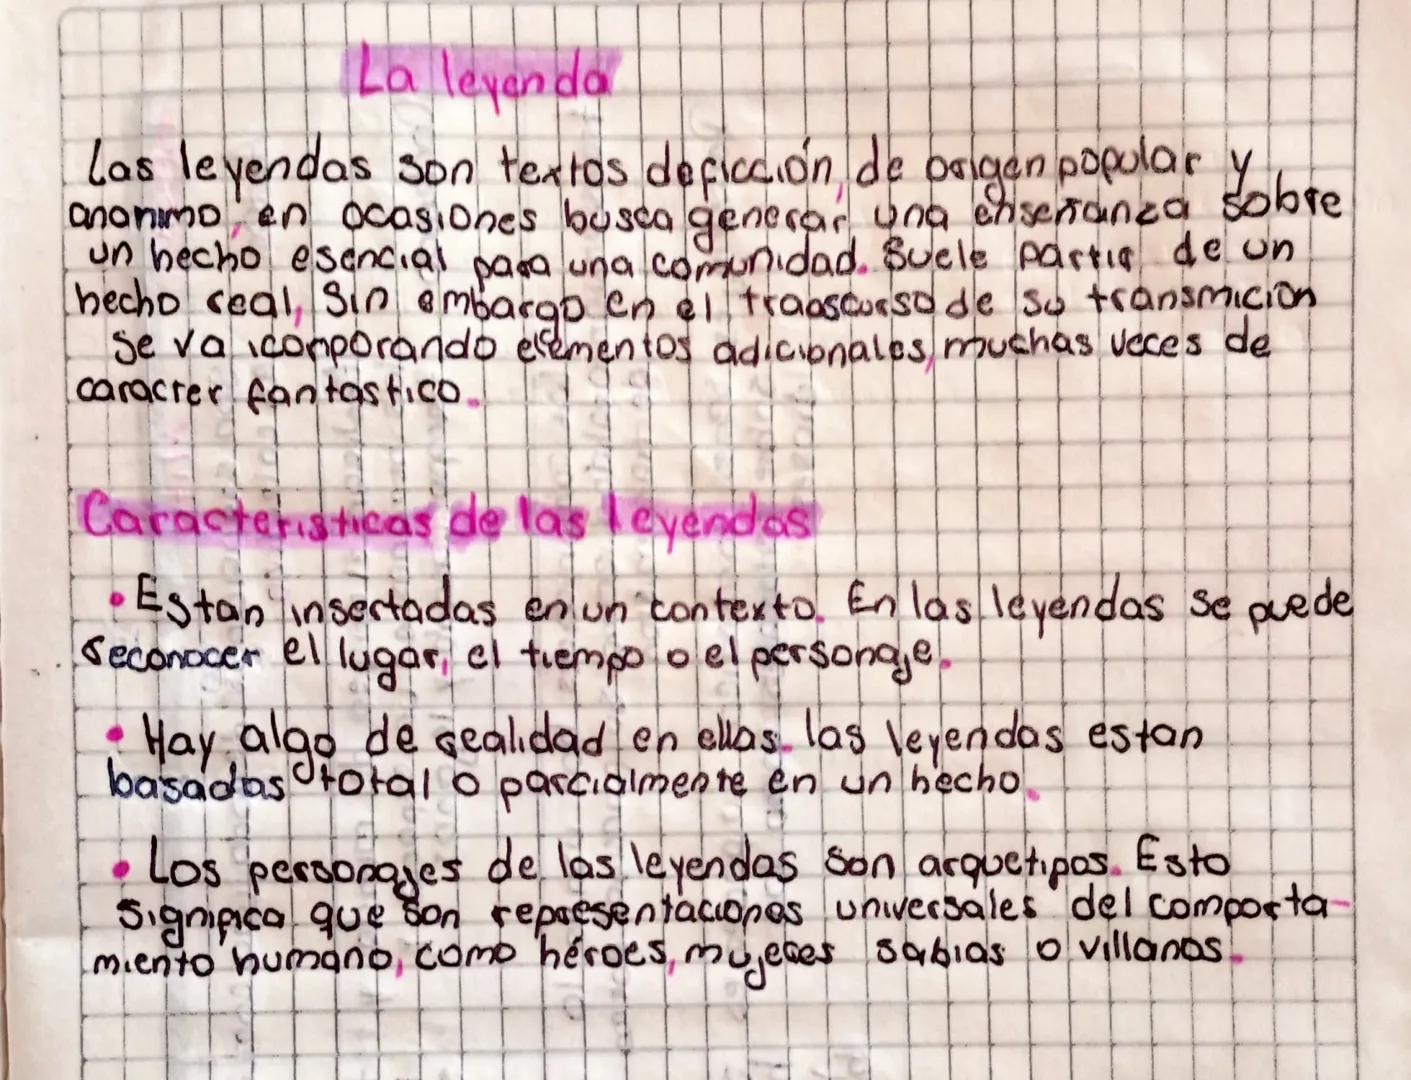 La leyenda
Las leyendas son textos deficción, de origen popular y
ananimo, en ocasiones busca generar una enseñanza sobre
un hecho esencial para una comunidad. Suele partir de un
hecho real, Sin embargo en el trascurso de su transmición
se va icorporando elementos adicionales, muchas veces de
caracter fantastico.
Caracteristicas de las leyendas
• Estan insertadas en un contexto. En las leyendas se puede
reconocer el lugar, el tiempo o el personaje.
• Hay algo de realidad en ellas. las leyendas estan
basadas total o parcialmente en un hecho.
• Los personajes de las leyendas son arquetipos. Esto
significa que son representaciones universales del comporta-
miento humano, como héroes, mujeres sabias o villanos.